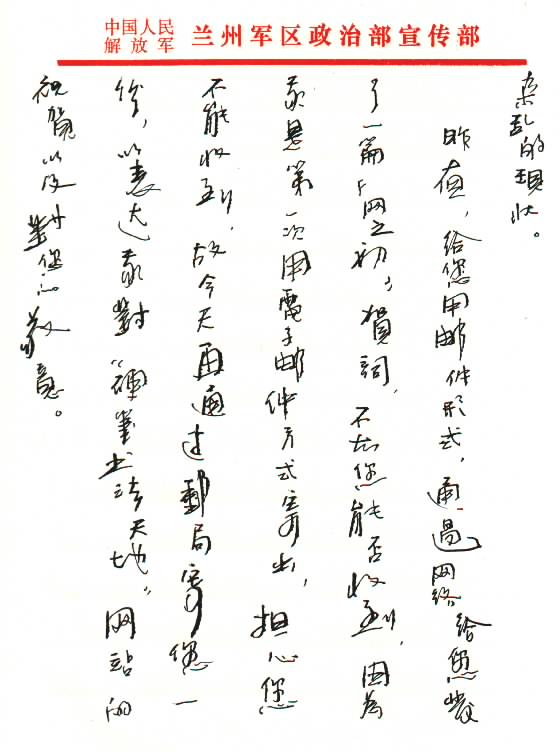 中国人民
解放军
兰州军区政治部宣传部
杂乱的現状。
昨夜，给您用邮件形式，通過网络给您發
了一篇“上网之初”賀詞，不知您能否收到，因為
我是第一次用電子邮件方式寄出，担心您
不能收到，故今天再通过郵局寄您一
份，以表达我對“硬筆书法天地”网站的
祝贺以及對您的敬意。